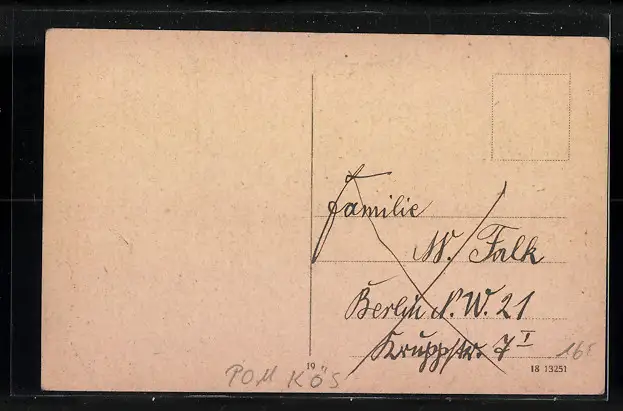 Familie
W. Falk
Berlin N.W. 21
Kruppstr. 7 I
19
18 13251
POM KÖS